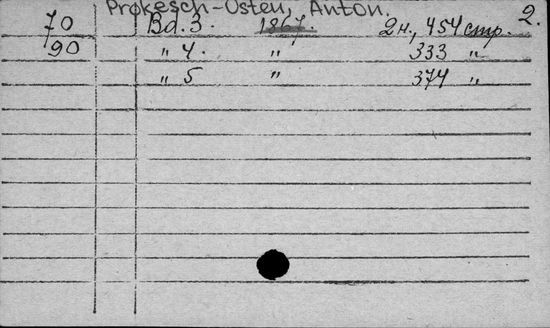 Prokesch-Osten, Anton. 2.
70 Bd. 3. 1867. 2 н., 454 стр.
90 " 4. " 333 "
" 5 " 374 "